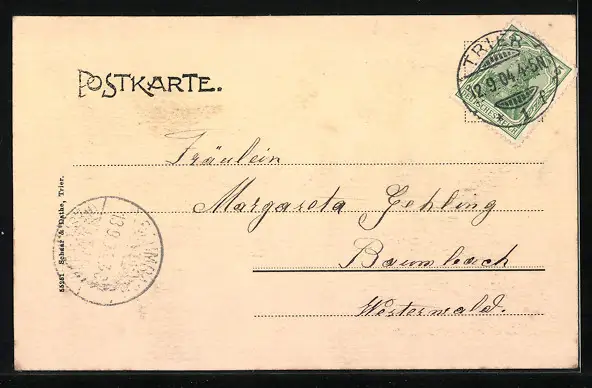 POSTKARTE.
TRIER
12.9.04.4-5N.
DEUTSCHES REICH
Fräulein
Margareta Gehling
Baumbach
Westerwald.
Schaar & Dathe, Trier.